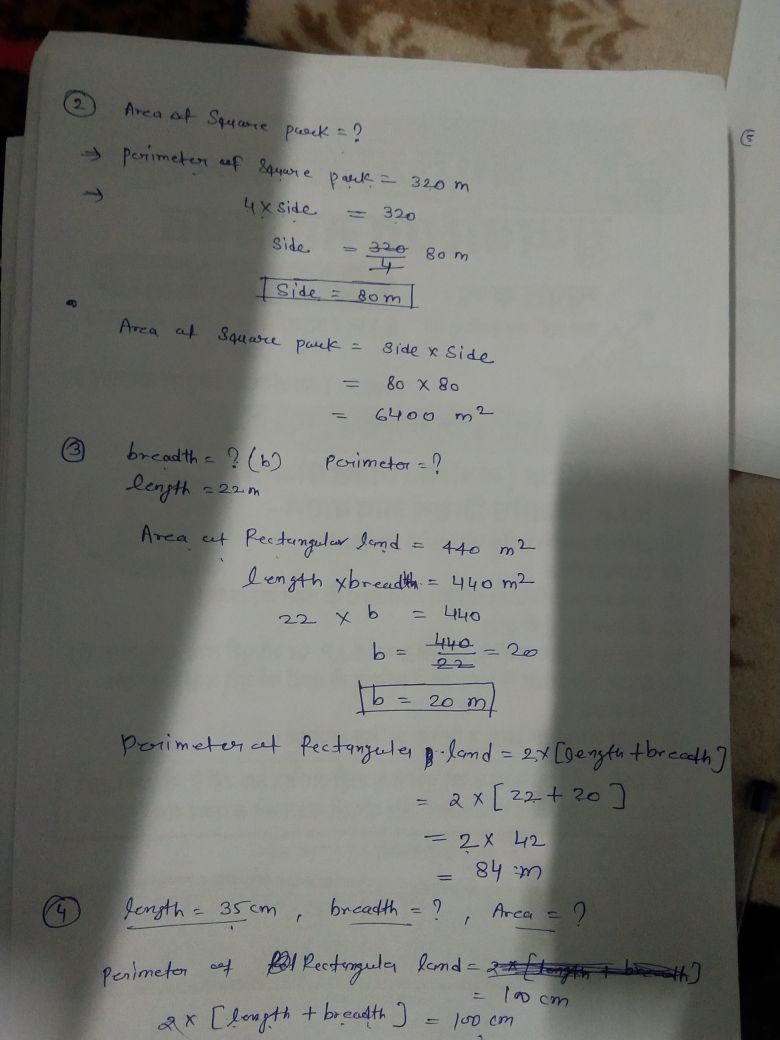 ② Area of Square park = ?
⇒ Perimeter of Square park = 320 m
⇒ 4 x side = 320
side = 320/4 80 m
Side = 80 m
Area of Square park = side x side
= 80 x 80
= 6400 m²
③ breadth = ? (b) Perimeter = ?
length = 22 m
Area of Rectangular land = 440 m²
length x breadth = 440 m²
22 x b = 440
b = 440/22 = 20
b = 20 m
Perimeter of Rectanguler land = 2 x [length + breadth]
= 2 x [22 + 20]
= 2 x 42
= 84 m
④ length = 35 cm, breadth = ?, Area = ?
Perimeter of Rectanguler land = 2 x [length + breadth]
= 100 cm
2 x [length + breadth] = 100 cm